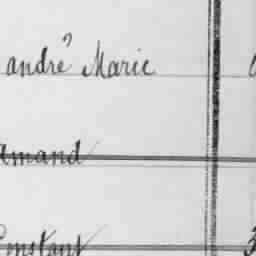 andré Marie
Amand
Constant